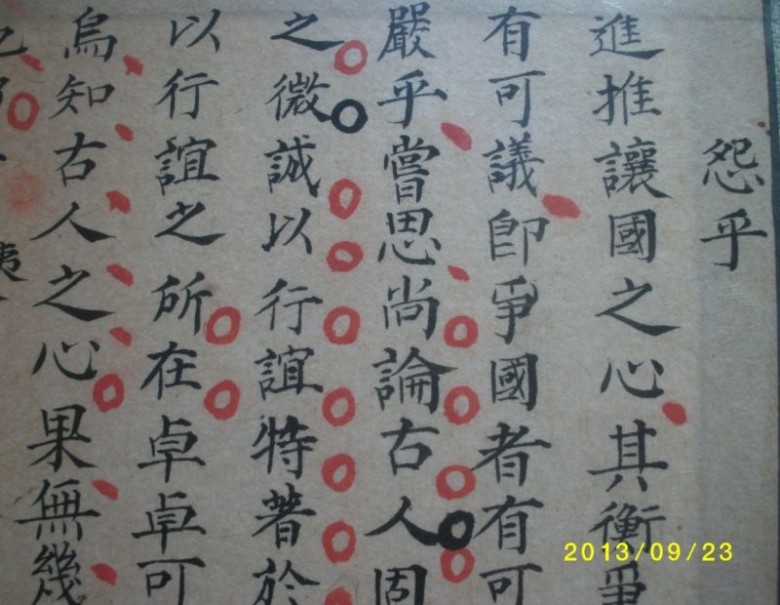 怨乎
進推讓國之心其衡爭
有可議卽爭國者有可
嚴乎嘗思尚論古人固
之微誠以行誼特著於
以行誼之所在卓卓可
烏知古人之心果無幾
2013/09/23